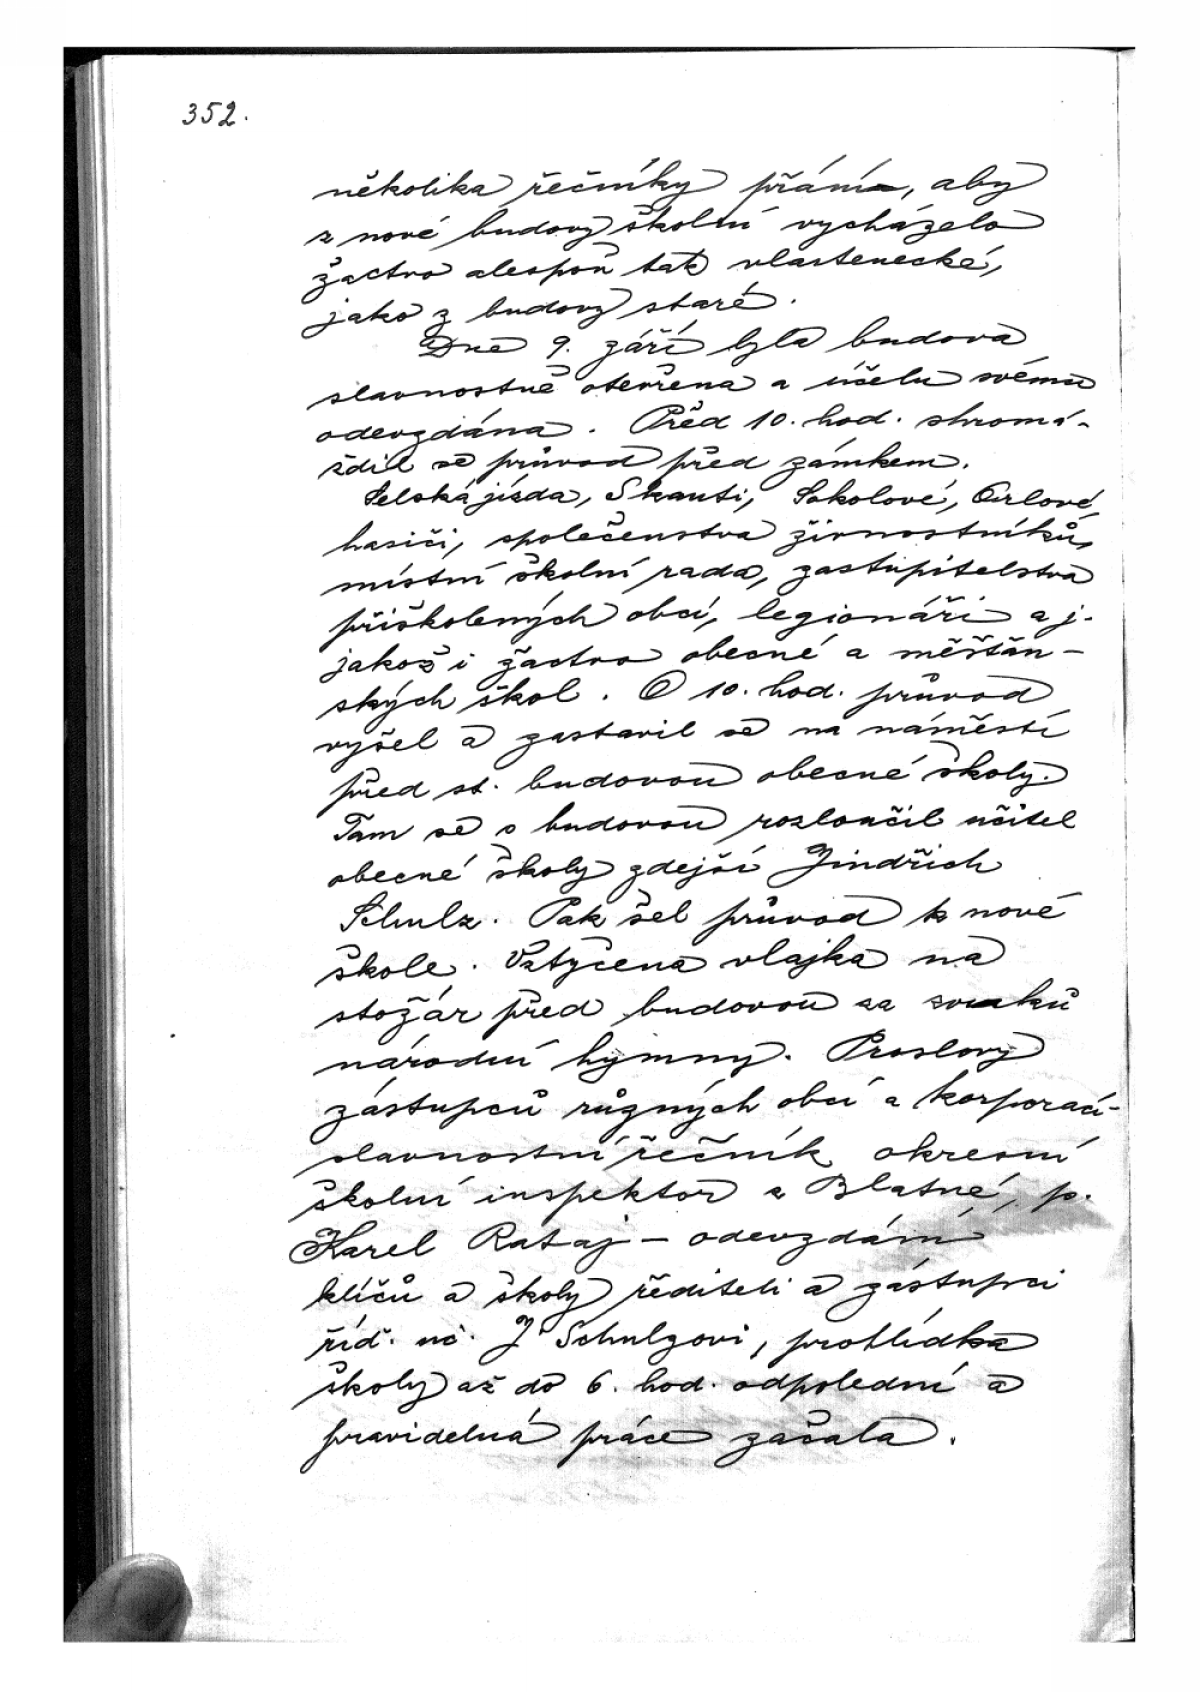 352.
několika řečníky přáním, aby
z nové budovy školní vycházelo
žactvo alespoň tak vlastenecké,
jako z budovy staré.
Dne 9. září byla budova
slavnostně otevřena a účelu svému
odevzdána. Před 10. hod. shromá-
ždil se průvod před zámkem.
Selská jízda, Skauti, Sokolové, Orlové,
hasiči, společenstva živnostníků,
místní školní rada, zastupitelstva
přiškolených obcí, legionáři a j.
jakož i žactvo obecné a měšťan-
ských škol. O 10. hod. průvod
vyšel a zastavil se na náměstí
před st. budovou obecné školy.
Tam se s budovou rozloučil učitel
obecné školy zdejší Jindřich
Schulz. Pak šel průvod k nové
škole. Vztyčena vlajka na
stožár před budovou za zvuků
národní hymny. Proslovy
zástupců různých obcí a korporací-
slavnostní řečník okresní
školní inspektor z Blatné, p.
Karel Rataj - odevzdání
klíčů a školy řediteli a zástupci
říd. uč. J. Schulzovi, prohlídka
školy až do 6. hod. odpolední a
pravidelná práce začala.